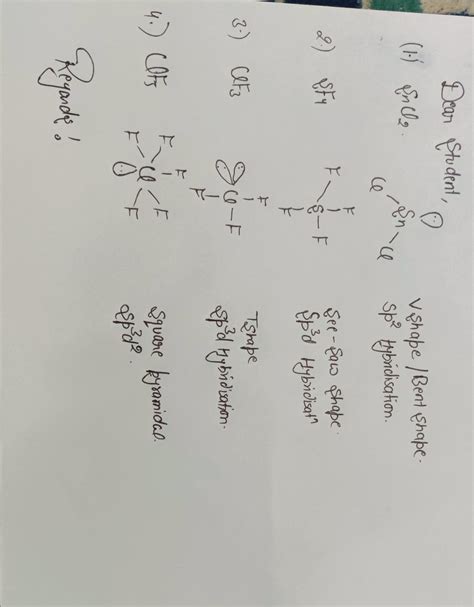 Dear Student,
(1.) SnCl₂. Sn V shape / Bent shape.
Cl Cl Sp² Hybridisation.
2.) SF₄ F F See-Saw shape.
S-F Sp³d Hybridisatⁿ
F
3.) ClF₃ F T shape
Cl-F Sp³d Hybridisation.
F
4.) ClF₅ F F F square pyramidal.
Cl Sp³d².
F F
Regards!